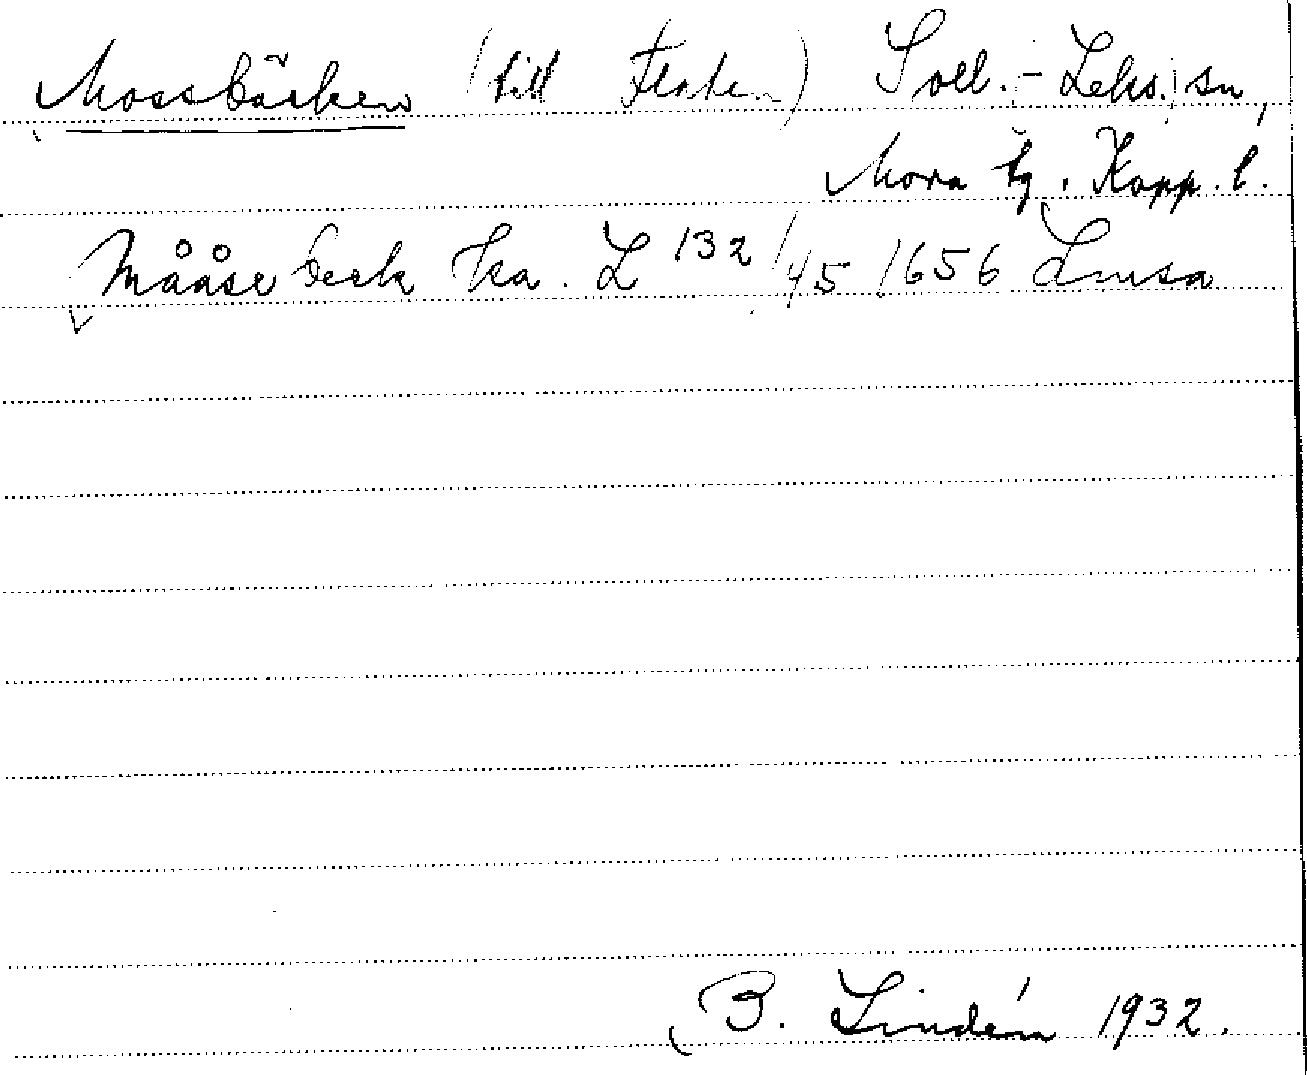 Mossbäcken (till Flaten) Soll.-Leks. sn,
Mora tg. Kopp. l.
Mååse beck Ka. L 132/45 1656 Limsa
B. Lindén 1932.